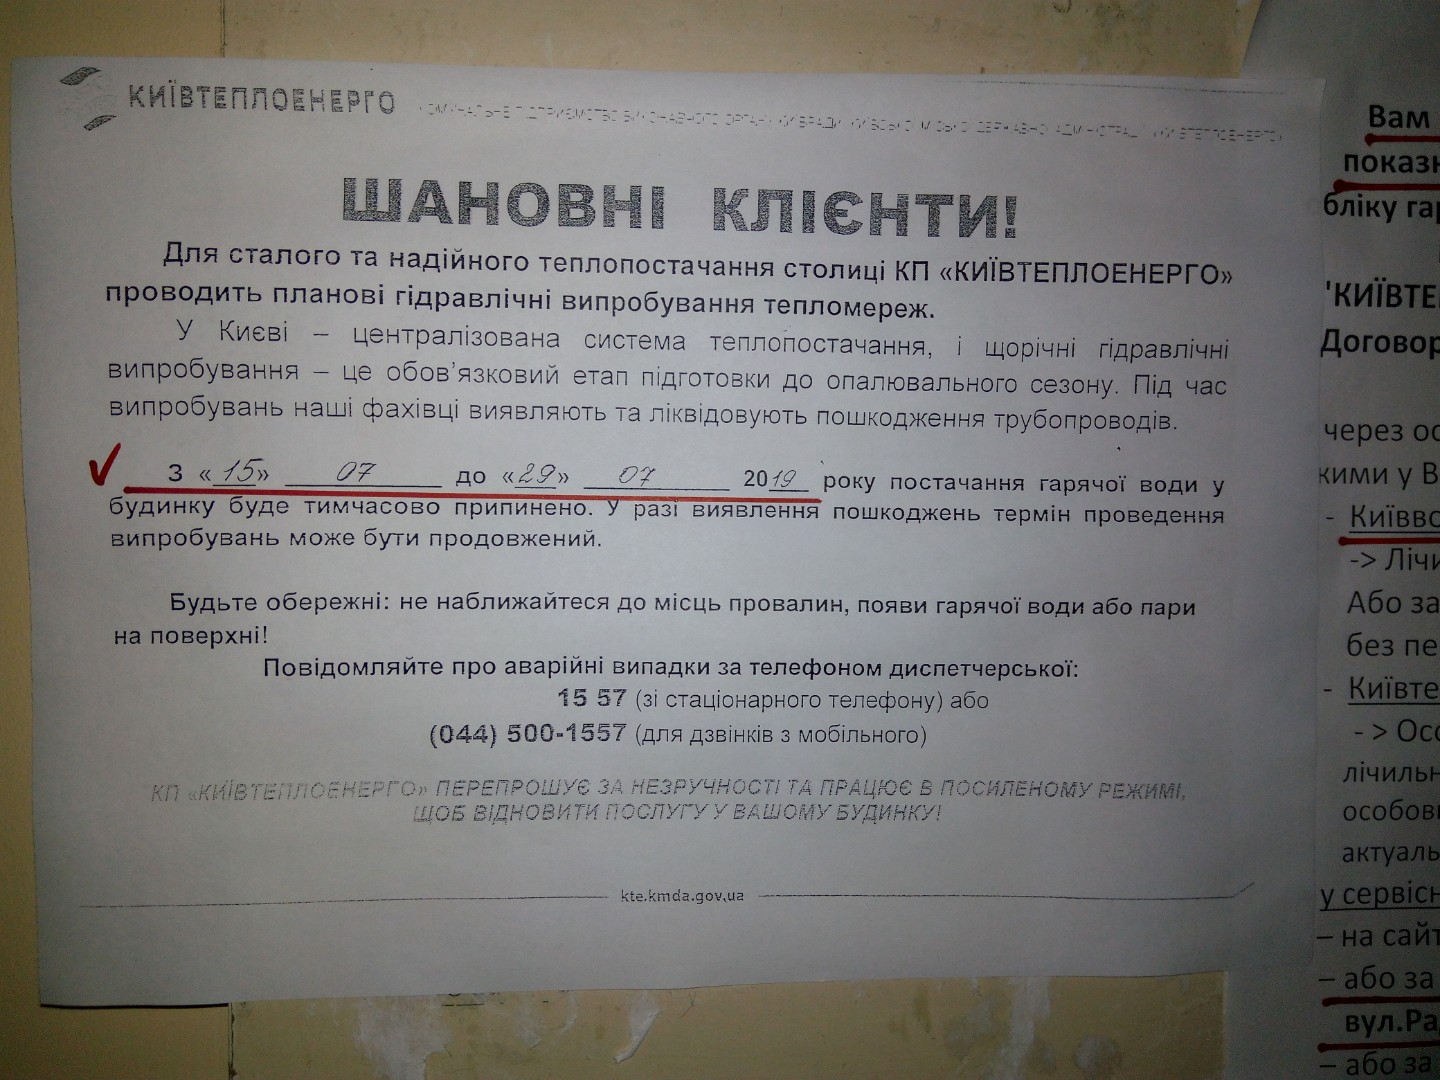 КИЇВТЕПЛОЕНЕРГО
ШАНОВНІ КЛІЄНТИ!
Для сталого та надійного теплопостачання столиці КП «КИЇВТЕПЛОЕНЕРГО»
проводить планові гідравлічні випробування тепломереж.
У Києві – централізована система теплопостачання, і щорічні гідравлічні
випробування – це обов'язковий етап підготовки до опалювального сезону. Під час
випробувань наші фахівці виявляють та ліквідовують пошкодження трубопроводів.
З «15» 07 до «29» 07 2019 року постачання гарячої води у
будинку буде тимчасово припинено. У разі виявлення пошкоджень термін проведення
випробувань може бути продовжений.
Будьте обережні: не наближайтеся до місць провалин, появи гарячої води або пари
на поверхні!
Повідомляйте про аварійні випадки за телефоном диспетчерської:
15 57 (зі стаціонарного телефону) або
(044) 500-1557 (для дзвінків з мобільного)
КП «КИЇВТЕПЛОЕНЕРГО» ПЕРЕПРОШУЄ ЗА НЕЗРУЧНОСТІ ТА ПРАЦЮЄ В ПОСИЛЕНОМУ РЕЖИМІ,
ЩОБ ВІДНОВИТИ ПОСЛУГУ У ВАШОМУ БУДИНКУ!
kte.kmda.gov.ua
Вам
через
у В
-
->
Або за
без
-
->
– на
– або за
– або за